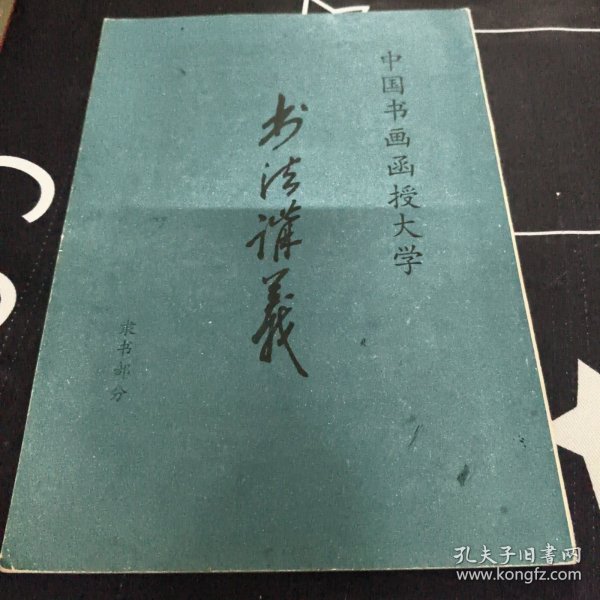 中国书画函授大学
书法講義
隶书部分
孔夫子旧书网
www.kongfz.com